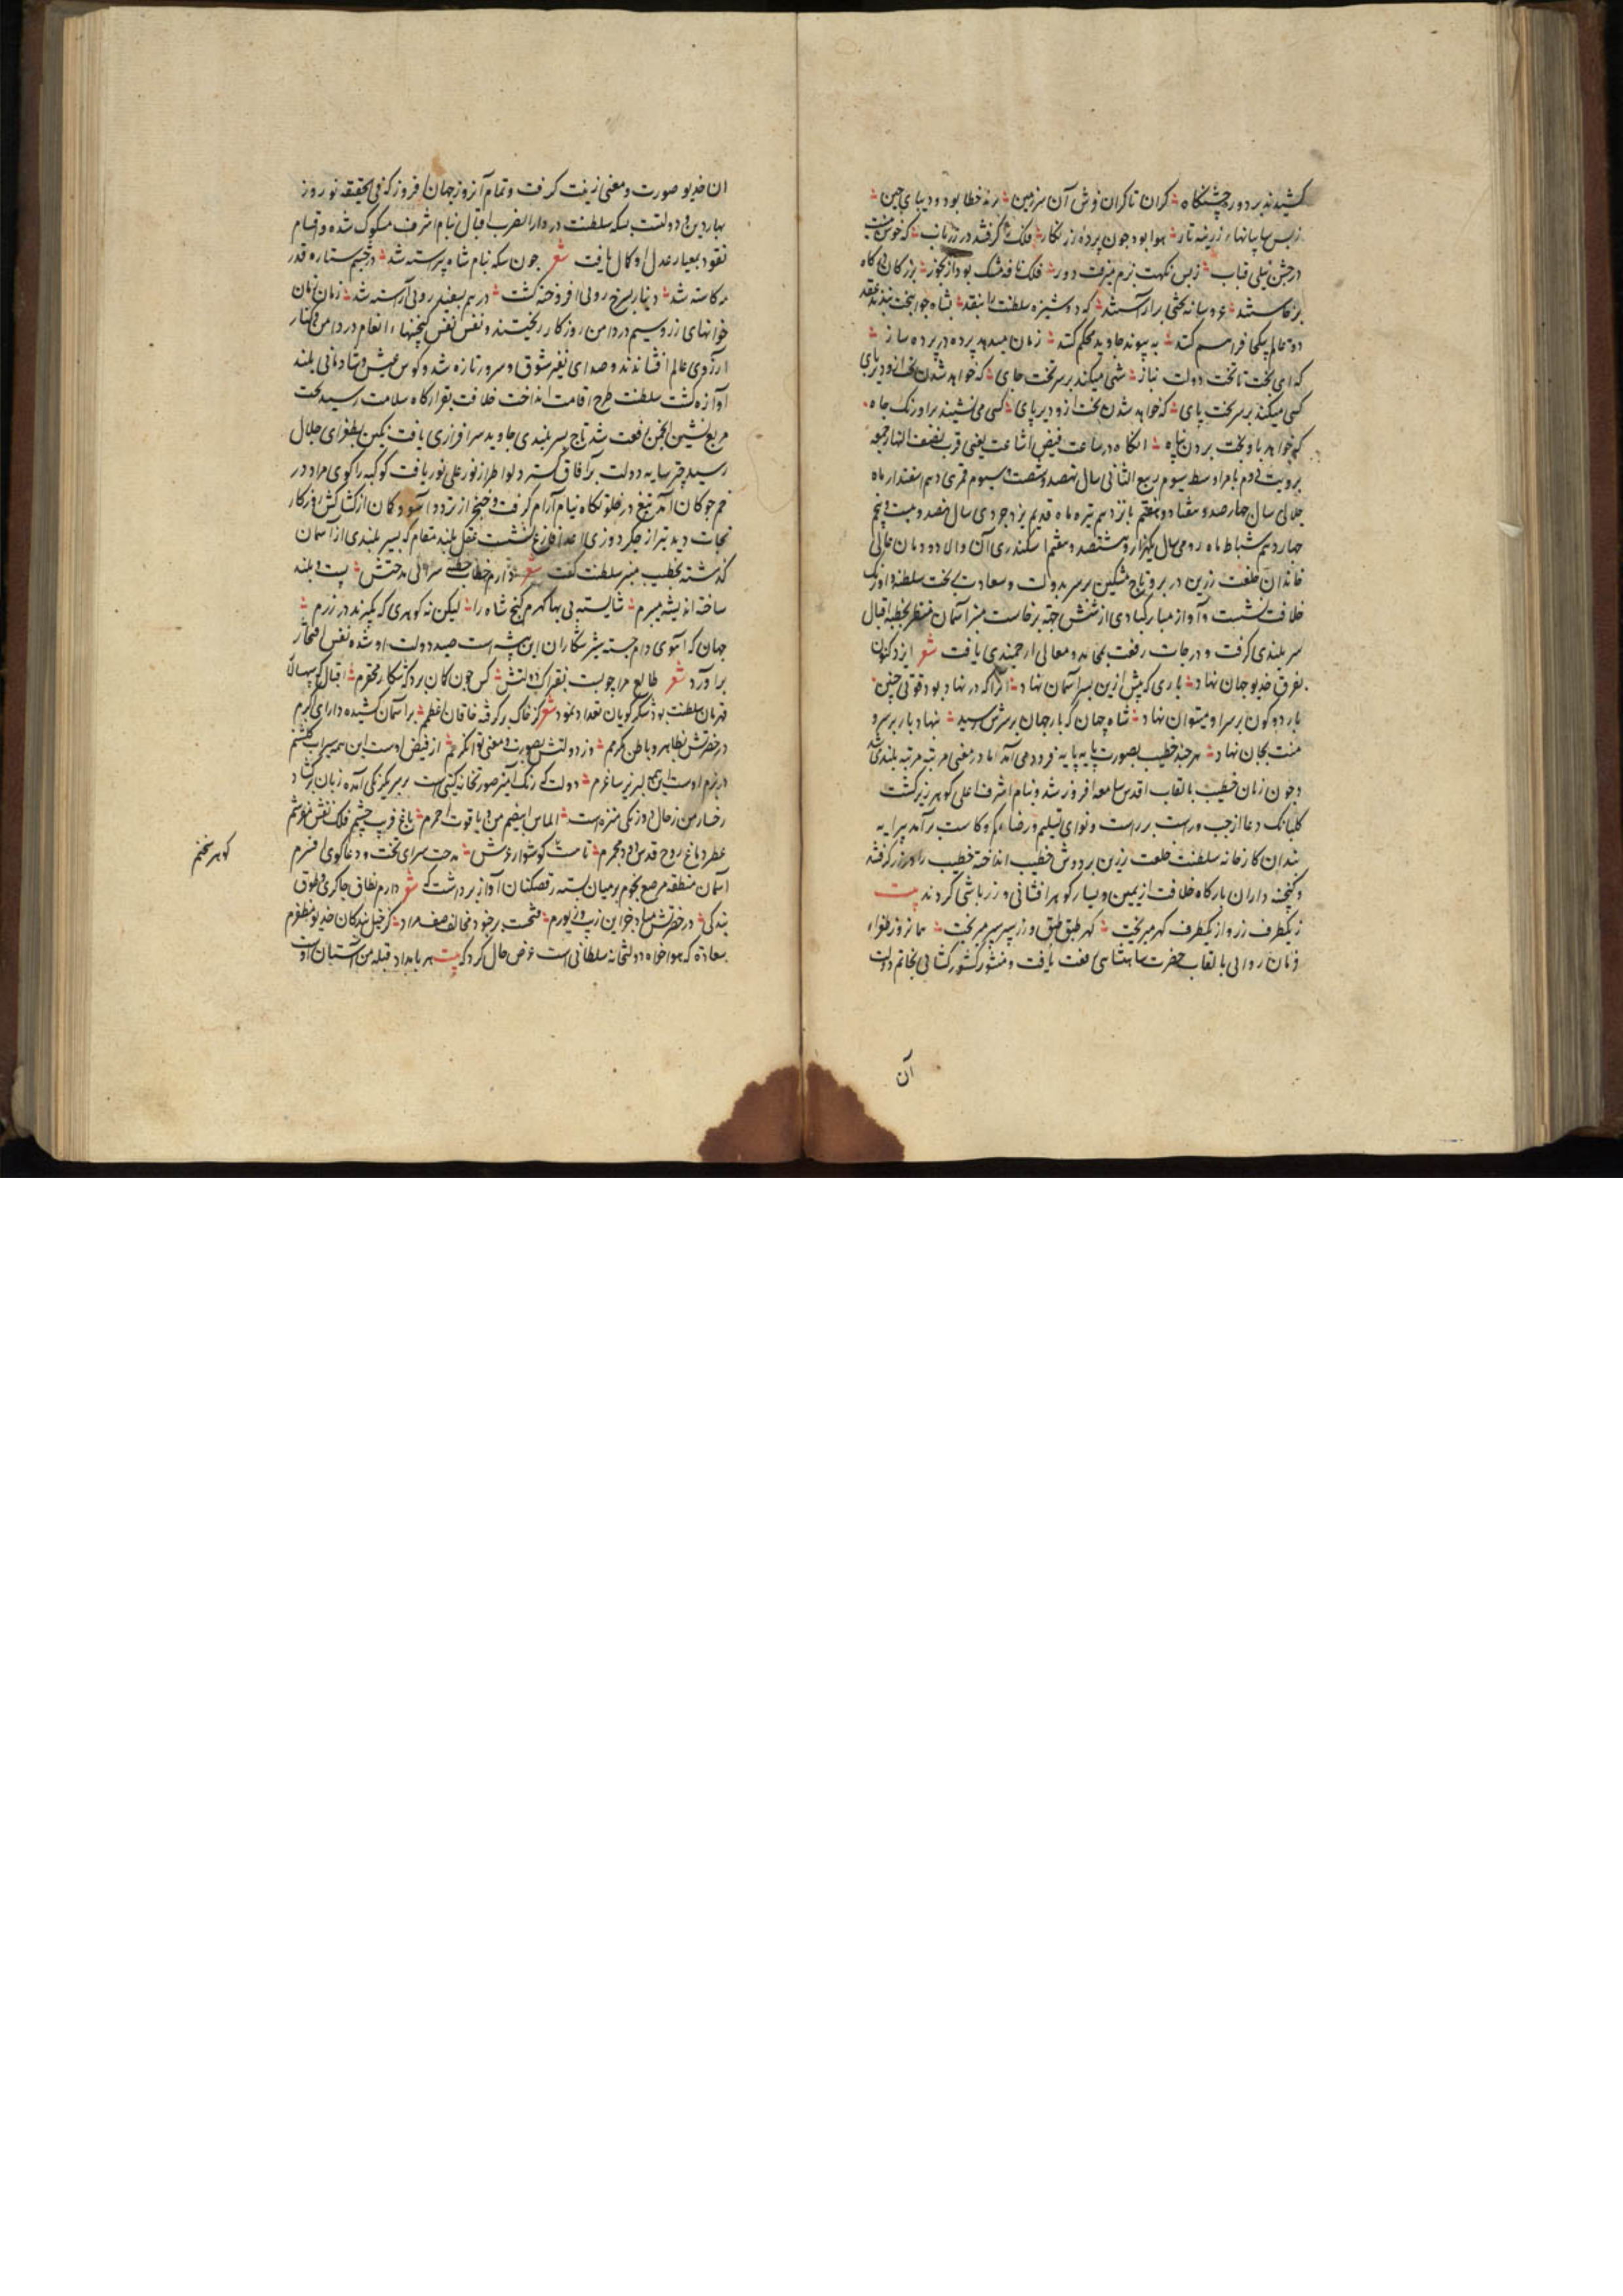 کشیدند بر دور جشنکاه کران تا کران فرش آن سرزمین ز خطا بود و دیبای چین
ز بس سایبانهاء زرینه تار هوا بود چون پرده زر نکار فلک کرفته در زر ناب که خوش
در جشن نیلی قباب ز بس نکهت بزم میرفت دور فلک نافه مشک بود از بخور بزرکان
برخاستند عروسانه تختی برآراستند که دوشیزه سلطنت را بنقد بشاه جوانبخت بندند عقد
دو عالم یکجا فراهم کنند به پیوند جاوید محکم کنند زمان میدهد پرده در پرده ساز
که ای بخت تا تخت دولت نیاز شهی میکند بر سر تخت جای که خواهد شدن تخت ازو دیرپای
کسی میکند بر سر تخت پای که خواهد شدن تخت ازو دیر پای کسی می نشیند بر اورنک جاه
که خواهد باو تخت بردن پناه انکاه در ساعت فیض اشاعت یعنی قرب بنصف النهار جمعه
برویت دوم بامر اوسط سیوم ربیع الثانی سال نهصد و شصت و سیوم قمری دهم اسفندار ماه
جلالی سال چهار صد و هفتاد و هفتم پانزدهم تیر ماه قدیم یزدجردی سال نهصد و بیست و پنجم
چهاردهم شباط ماه رومی سال یکهزار و هشتصد و هفتم اسکندری آن والا دودمان عالی
خاندان خلعت زرین در بر و تاج مشکین بر سر بدولت و سعادت بر تخت سلطنت و اورنک
خلافت نشست و آواز مبارکبادی از شش جهة برخاست منبر آسمان منظر بخطبه اقبال
سر بلندی کرفت و درجات رفعت بمحامد و معالی ارجمندی یافت شعر ایزد کنون
بفرق خدیو جهان نهاد باری که پیش ازین بسر آسمان نهاد انرا که در نهاد بود قوتی چنین
بار دو کون بر سر او میتوان نهاد شاه جهان که بار جهان بر سرش رسید بنهاد بار بر سر و
منت بجان نهاد هر چند خطیب بصورت پایه پایه فرود می آمد اما در معنی مرتبه مرتبه بلندی شد
و چون زبان خطیب بالقاب اقدس سامعه افروز شد و بنام اشرف اعلی کوهر ریز کشت
کلبانک دعا از چپ و راست برراست و نوای تسلیم و رضا از کم و کاست برآمد پیرایه
بندان کارخانه سلطنت خلعت زرین بر دوش خطیب انداخته خطیب را در زر کرفتند
و کنجینه داران بارکاه خلافت از یمین و یسار کوهر افشانی و زر پاشی کردند بیت
ز یکطرف زر و از یکطرف کهر میریخت کهر طبق طبق و زر سپر سپر میریخت همانروز طغراء
فرمان روایی بالقاب حضرت شاهنشاهی رفعت یافت و منشور کشور کشایی بخاتم دولت
آن
ان خدیو صورت و معنی زینت کرفت و تمام آنروز جهان افروز که فی الحقیقه نوروز
بهار دین و دولتست سکه سلطنت در دار الضرب اقبال بنام اشرف مسکوک شده و اقسام
نقود بعیار عدل او کمال یافت شعر چون سکه بنام شاه پیراسته شد در چشم ستاره قدر
مه کاسته شد دینار بسرخ رویی افروخته کشت درهم بسفید رویی آراسته شد زمان زمان
خوانهای زر و سیم در دامن روزکار ریختند و نفس نفس کنجینهاء انعام در دامن و کنار
آرزوی عالم افشاندند و صدای نفیر شوق و سرور تازه شد و کوس عیش و شادمانی بلند
آوازه کشت سلطنت طرح اقامت انداخت خلافت بقرارکاه سلامت رسید تخت
مربع نشین انجمن رفعت شد تاج بسر بلندی جاوید سرافرازی یافت نکین بطغرای جلال
رسید چتر سایه دولت بر آفاق کسترد لوا طراز نور علی نور یافت کوکبه را کوی مراد در
خم چوکان آمد تیغ در خلوتکاه نیام آرام کرفت و خنجر از تردد آسود کمان از کشاکش روزکار
نجات دید تیر از جکر دوزی اعدا فارغ نشست عقل بلند مقام که بسر بلندی از آسمان
کذشته بخطیب منبر سلطنت کفت شعر دارم خطاب خطبه سرائی مدحتش پست و بلند
ساخته اندیشه منبرم شایسته بی بها کهرم کنج شاه را لیکن نه کوهری که بکیرند در زرم
جهان که آهوی دام جسته شیر شکاران این بیشه است صید دولت او شده نفس افتخار
برآورد شعر طالع مرا چو بست بفتراک دولتش کس چون کمان برد که شکار محقرم اقبال که سپهسالار
قهرمان سلطنت بود شکر کویان تعداد نمود شعر کز خاک برکرفته خاقان اعظمم بر آسمان کشیده دارای اکرم
در حضرتش بظاهر و باطن مکرمم وز دولتش بصورت و معنی توانکرم از فیض اوست این همه سیراب کلشنم
در بزم اوست این همه لبریز ساغرم دولت که رنک آمیز صورتخانه کیتی است بر سر یکرنکی آمده زبان برکشاد
رخسار من ز خال دو رنکی منزه است الماس ابیضم من و یاقوت احمرم باغ فریب چشم فلک نقش خوشم
عطر دماغ روح قدس دود مجمرم تا مشت کوشوار عرش مدحت سرای تخت و دعاکوی افسرم
آسمان منطقه مرصع نجوم بر میان بسته رقص کنان آواز برداشت که شعر دارم نطاق چاکری و طوق
بندکی در حضرتش مباد جز این زیب و زیورم قسمت بر خود مخالف صف مراد کز خیل بندکان خدیو مظفرم
سعادة که هواخواه دولتخانه سلطانی است عرض حال کرد که بیت هر بامداد قبله من آستان او
کوهر سخنم